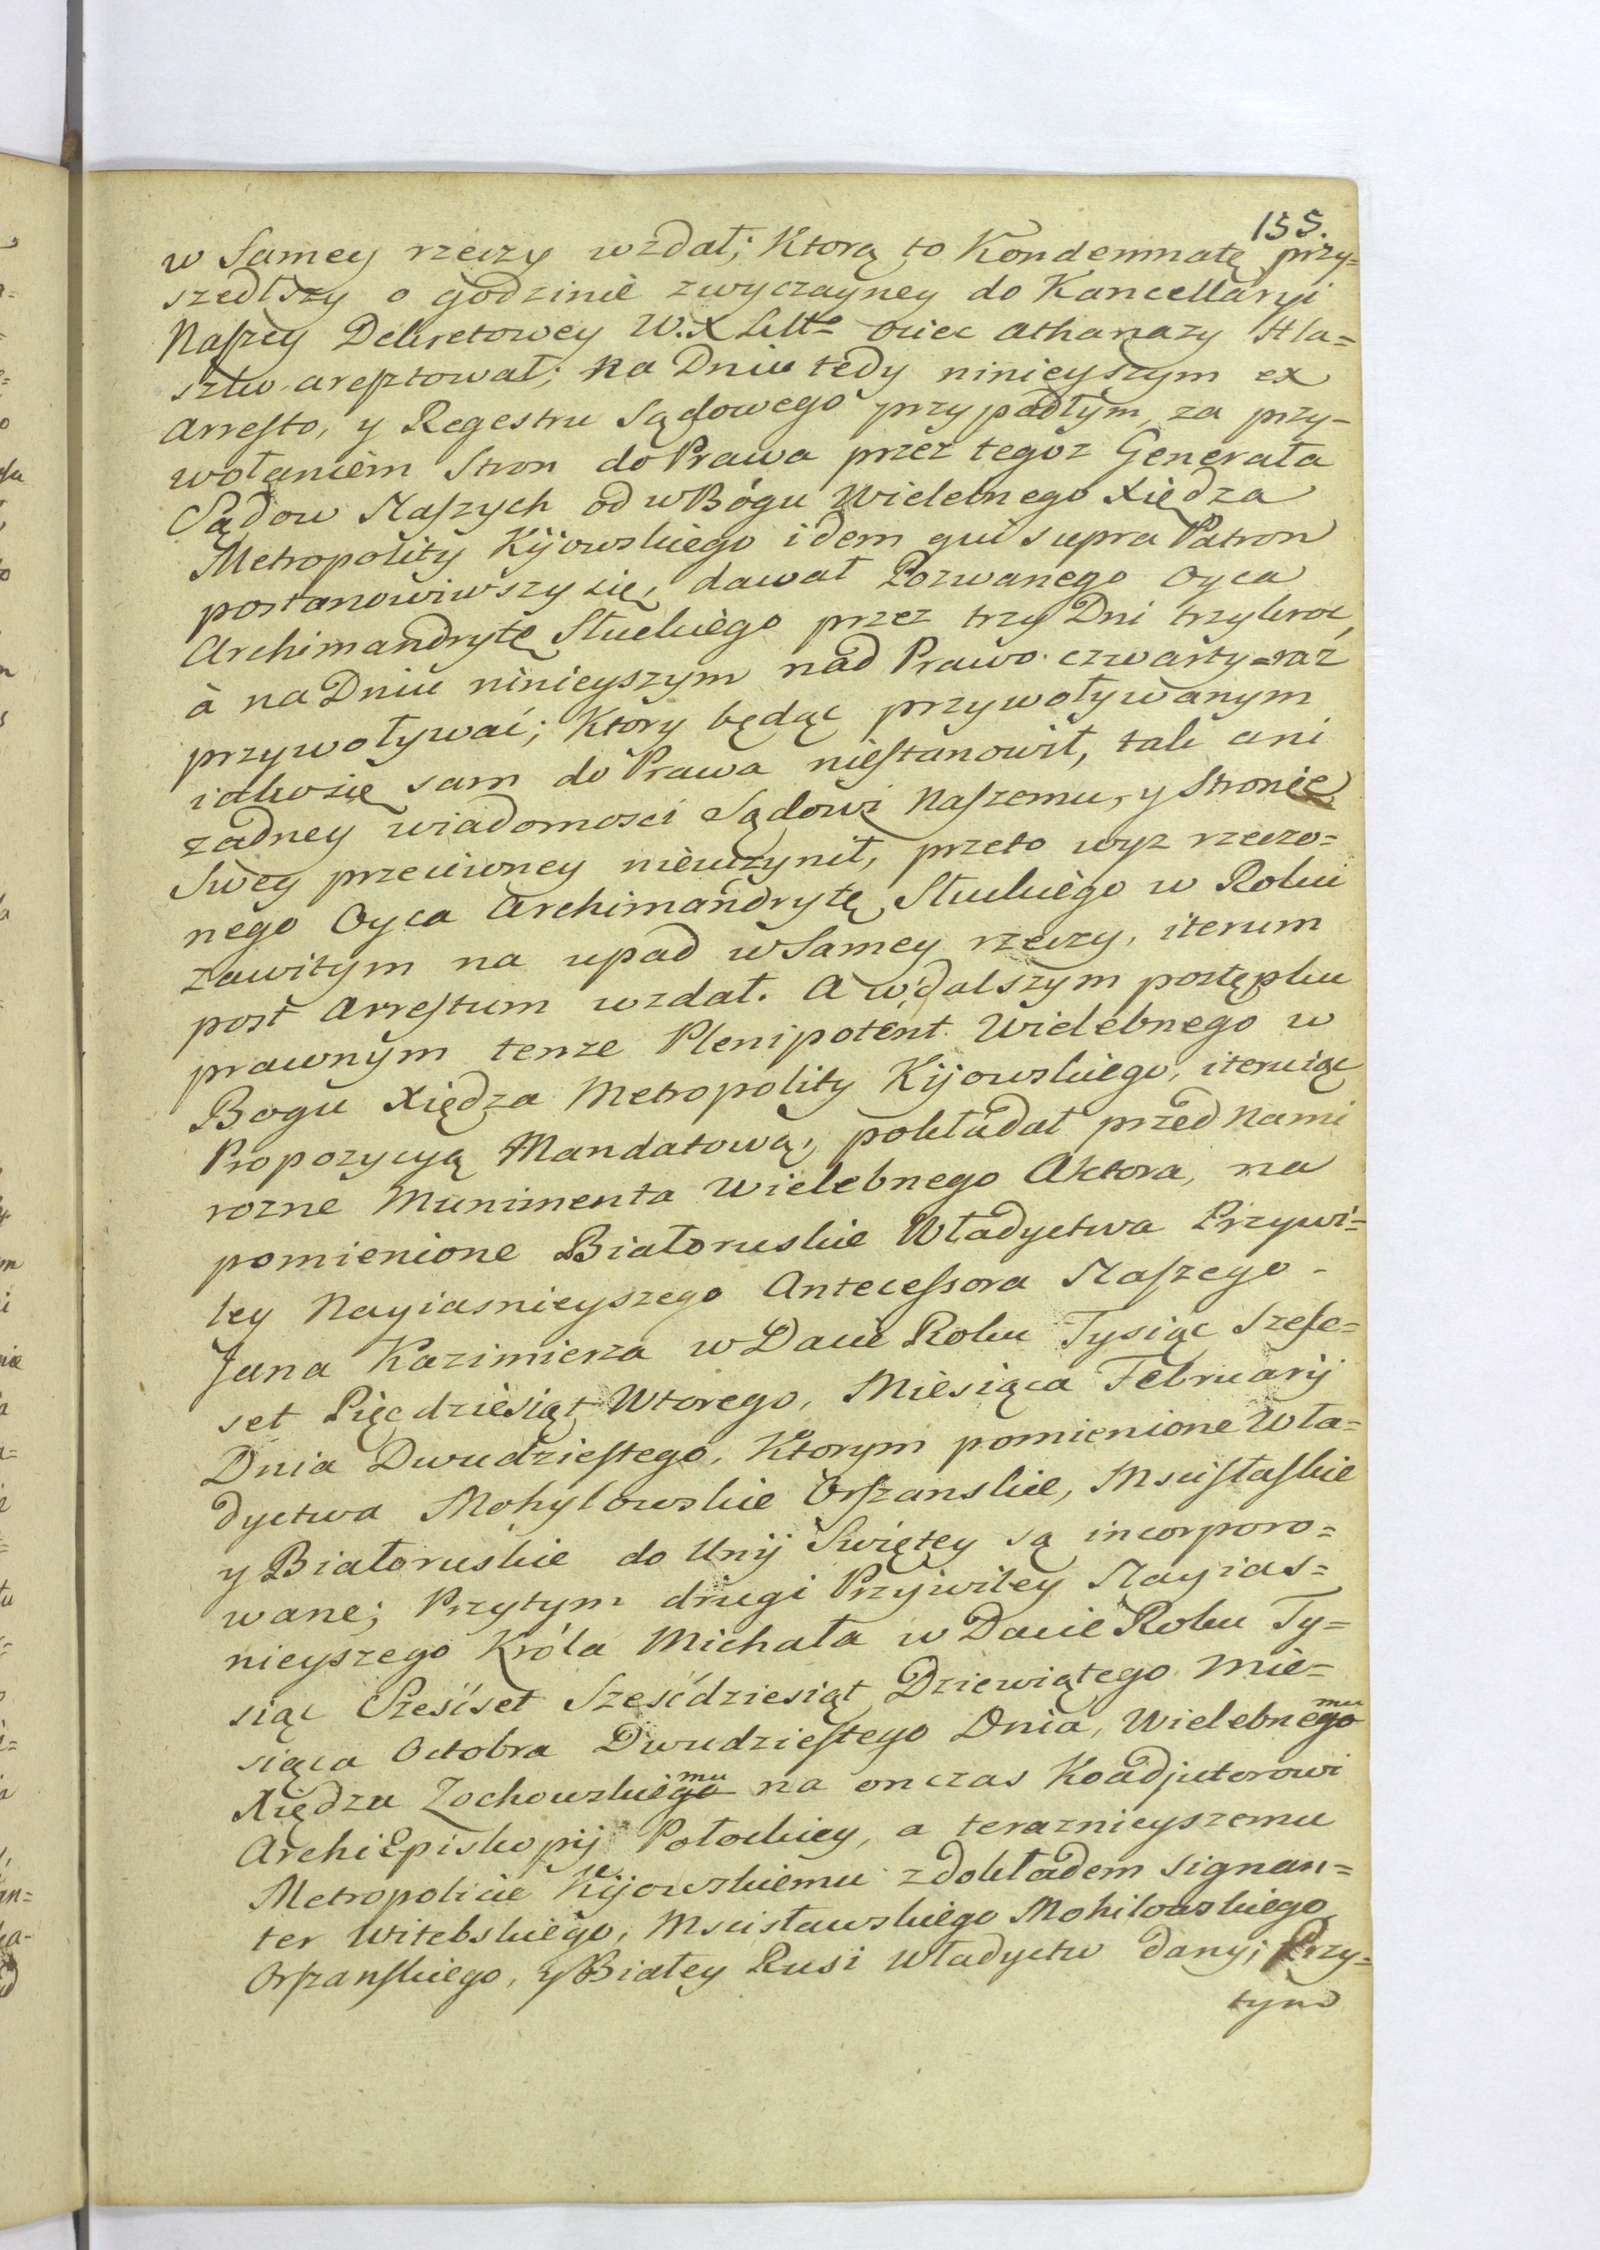 155.
w Samey rzeczy wzdał; Ktorą to Kondemnatę przy=
szedłszy o godzinie zwyczayney do Kancellaryi
Naszey Dekretowey W. X Litt° ociec Athanazy Hla=
sztw. aresztował; na Dniu tedy ninieyszym ex
Arresto, y Regestru Sądowego przypadłym, za przy-
wołaniem Stron do Prawa przez tegoz Generała
Sądow Naszych od w Bógu Wielebnego Xiędza
Metropolity Kijowskiego idem qui supra Patron
postanowiwszy się, dawał Pozwanego Oyca
Archimandrytę Słuckiego przez trzy Dni trzykroć,
à na Dniu ninieyszym nad Prawo czwarty=raz
przywoływać; Ktory będąc przywoływanym
iako się sam do Prawa niestanowił, tak ani
zadney wiadomosci Sądowi Naszemu, y Stronie
Swey przeciwney nieuczynił, przeto wyz rzeczo=
nego Oyca Archimandrytę Słuckiego w Roku
zawitym na upad w Samey rzeczy, iterum
post Arrestum wzdał. A w dalszym postępku
prawnym tenze Plenipotent Wielebnego w
Bogu Xiędza Metropolity Kijowskiego, iteruiąc
Propozycyą Mandatową, pokładał przed Nami
rozne Munimenta Wielebnego Aktora, na
pomienione Białoruskie Władyctwa Przywi=
ley Nayiasnieyszego Antecessora Naszego -
Jana Kazimierza w Dacie Roku Tysiąc Szesc=
set Pięcdziesiąt Wtorego, Miesiąca Februarij
Dnia Dwudziestego, Ktorym pomienione Wła=
dyctwa Mohylowskie Orszanskie, Mscisłaskie
y Białoruskie do Unij Swiętey są incorporo=
wane; Przytym drugi Przywiley Nayias=
nieyszego Króla Michała w Dacie Roku Ty=
siąc Sześćset Sześćdziesiąt Dziewiątego Mie=
siąca Octobra Dwudziestego Dnia, Wielebnego mu
Xiędzu Zochowskiego mu na onczas Koadjutorowi
ArchiEpiskopij Połockiey, a teraznieyszemu
Metropolicie Kijowskiemu z dokładem signan=
ter Witebskiego, Mscisławskiego Mohilowskiego
Orszanskiego, y Białey Rusi Władyctw dany; Przy=
tym